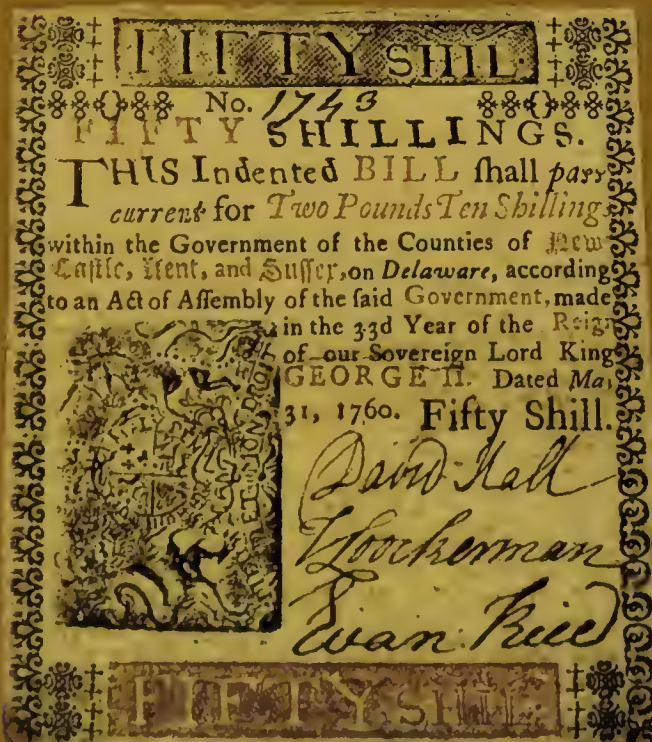 FIFTY SHIL.
No. 1743
FIFTY SHILLINGS.
THIS Indented BILL ſhall paſs
current for Two Pounds Ten Shillings
within the Government of the Counties of New-
Caſtle, Kent, and Suſſex, on Delaware, according
to an Act of Aſſembly of the ſaid Government, made
in the 33d Year of the Reign
of our Sovereign Lord King
GEORGE II. Dated May
31, 1760. Fifty Shill.
ET MON DROIT
David Hall
Vinc Loockerman
Evan Rice
FIFTY SHILL.